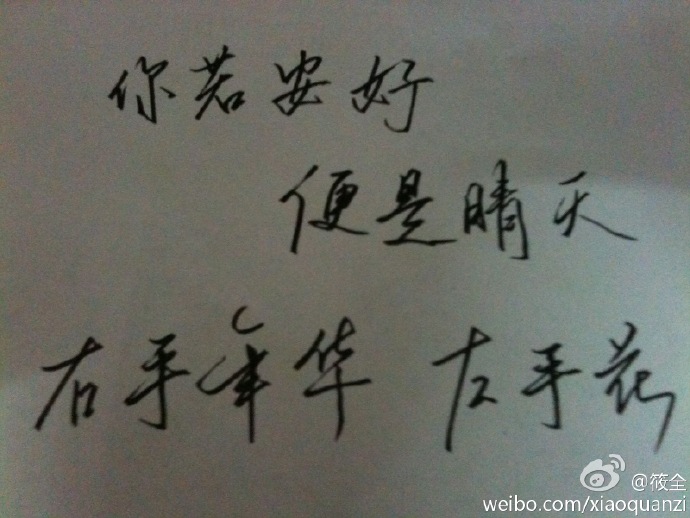 你若安好
便是晴天
右手年华 左手花
@筱全
weibo.com/xiaoquanzi